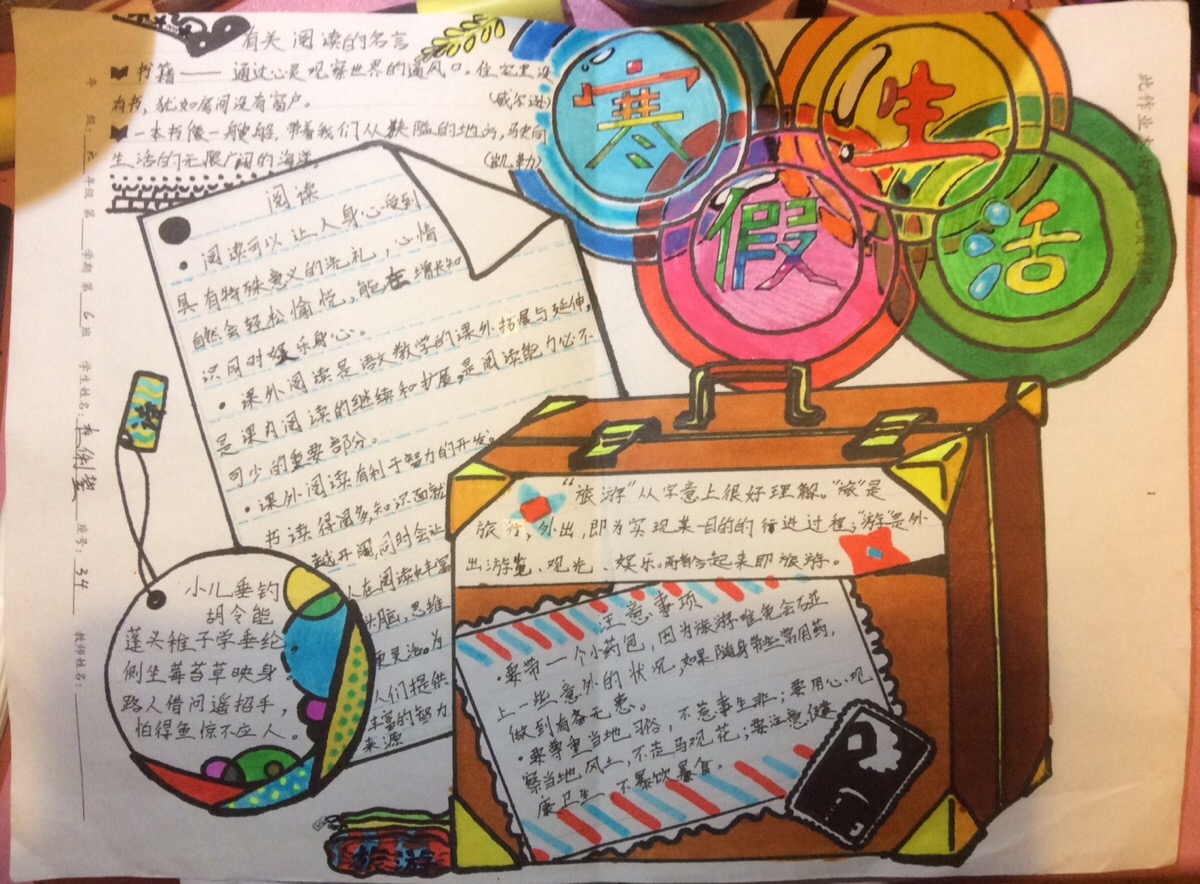 有关阅读的名言
书籍——通过心灵观察世界的通风口。住宅里没
有书，犹如房间没有窗户。
(威尔逊)
一本书像一艘船，带着我们从狭隘的地方，驶向
生活的无限广阔的海洋。
(凯勒)
寒假生活
阅读
·阅读可以让人身心受到
具有特殊意义的洗礼，心情
自然会轻松愉悦，能在增长知
识同时娱乐身心。
·课外阅读是语文教学的课外拓展与延伸，
是课内阅读的继续和扩展，是阅读能力必不
可少的重要部分。
·课外阅读有利于智力的开发。
书读得阅多，知识面就
越开阔，同时会让
人在阅读中丰富
头脑，思维
更灵活。为
人们提供
丰富的智力
来源
读
小儿垂钓
胡令能
蓬头稚子学垂纶
侧坐莓苔草映身
路人借问遥招手，
怕得鱼惊不应人。
“旅游”从字意上很好理解。“旅”是
旅行，外出，即为实现某一目的的行进过程；“游”是外
出游览、观光、娱乐。两者合起来即旅游。
注意事项
·要带一个小药包，因为旅游难免会碰
上一些意外的状况，如果随身带些常用药，
做到有备无患。
·要尊重当地习俗，不惹事生非；要用心观
察当地风土，不走马观花；要注意健
康卫生，不暴饮暴食。
旅游
年 级： 年级 第 学期 第 6 班 学生姓名： 座号：34 教师姓名：
此作业本